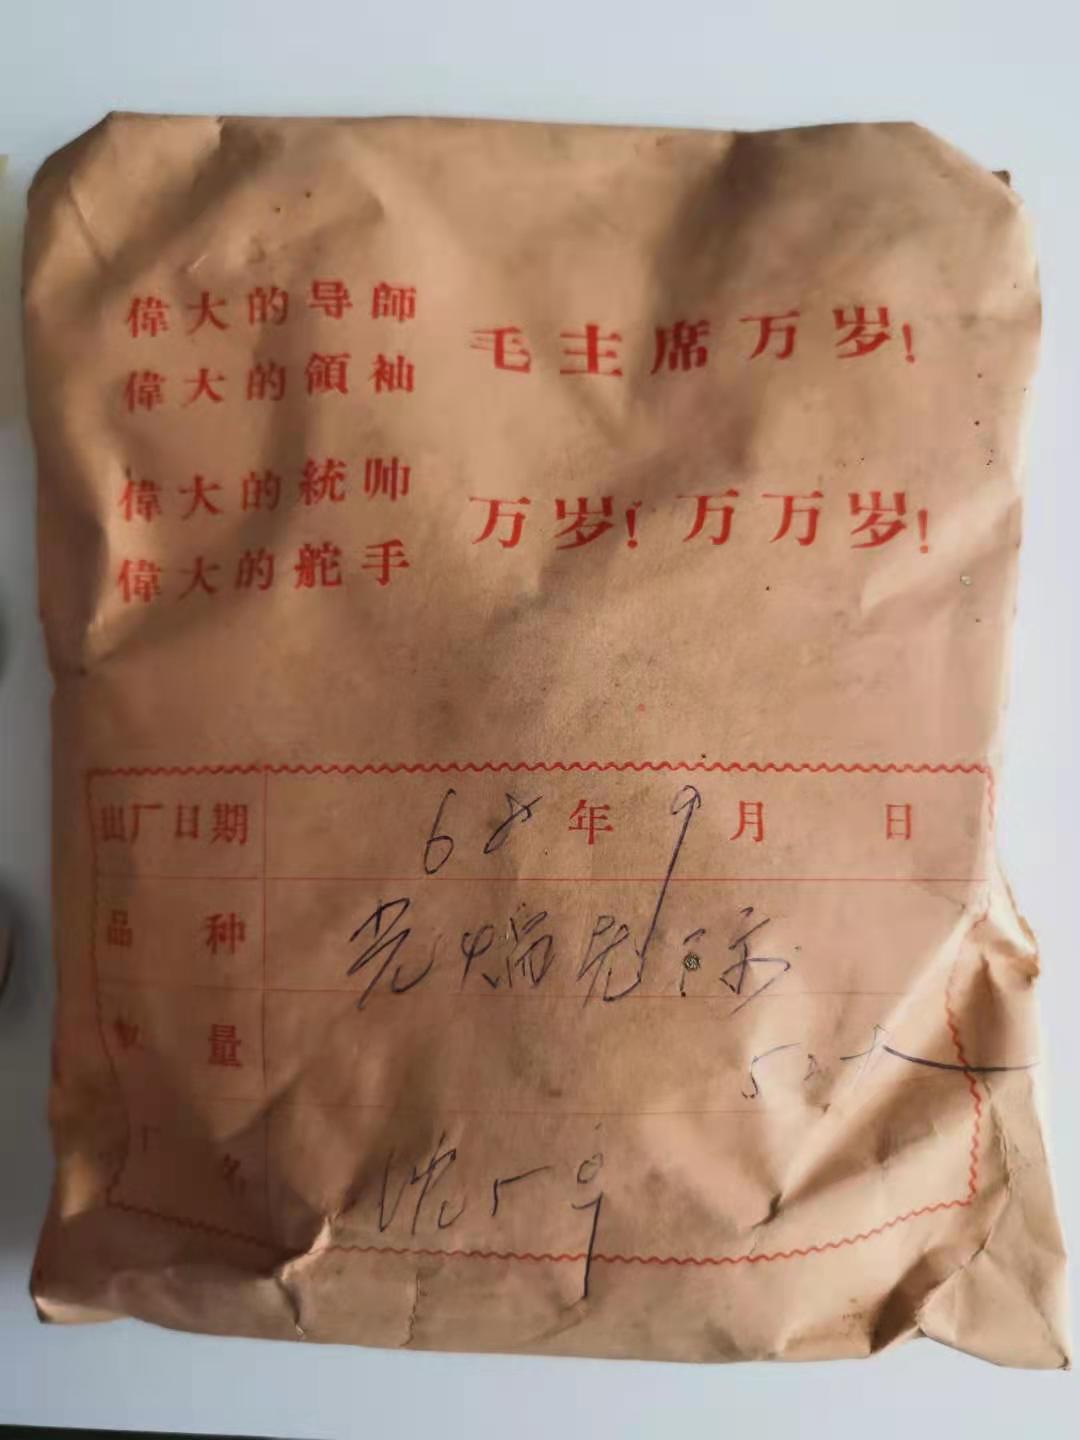 偉大的导師
偉大的領袖
毛主席万岁!
偉大的統帅
偉大的舵手
万岁!万万岁!
出厂日期 68年9月 日
品种
量
厂名 沈5号